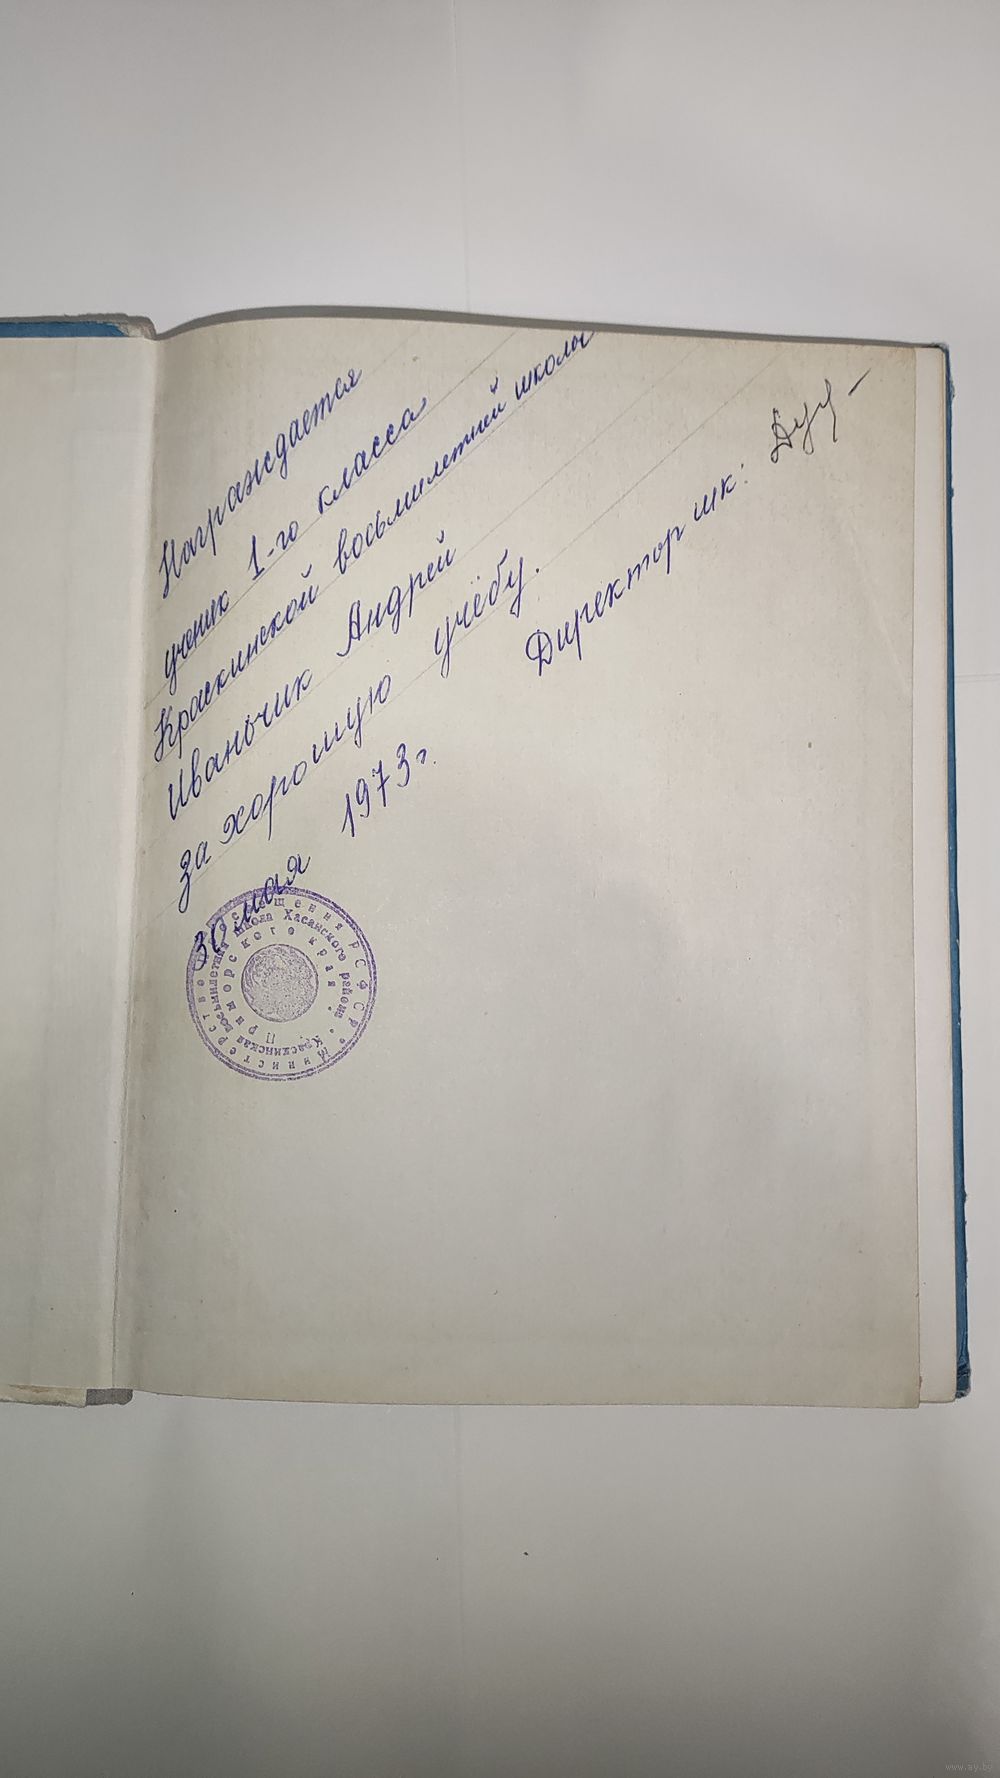 Награждается
ученик 1-го класса
Краскинской восьмилетней школы
Иванчик Андрей
за хорошую учёбу.
Директор шк:
30 мая 1973 г.
Министерство просвещения РСФСР
Краскинская восьмилетняя школа Хасанского района
Приморского края
www.ay.by